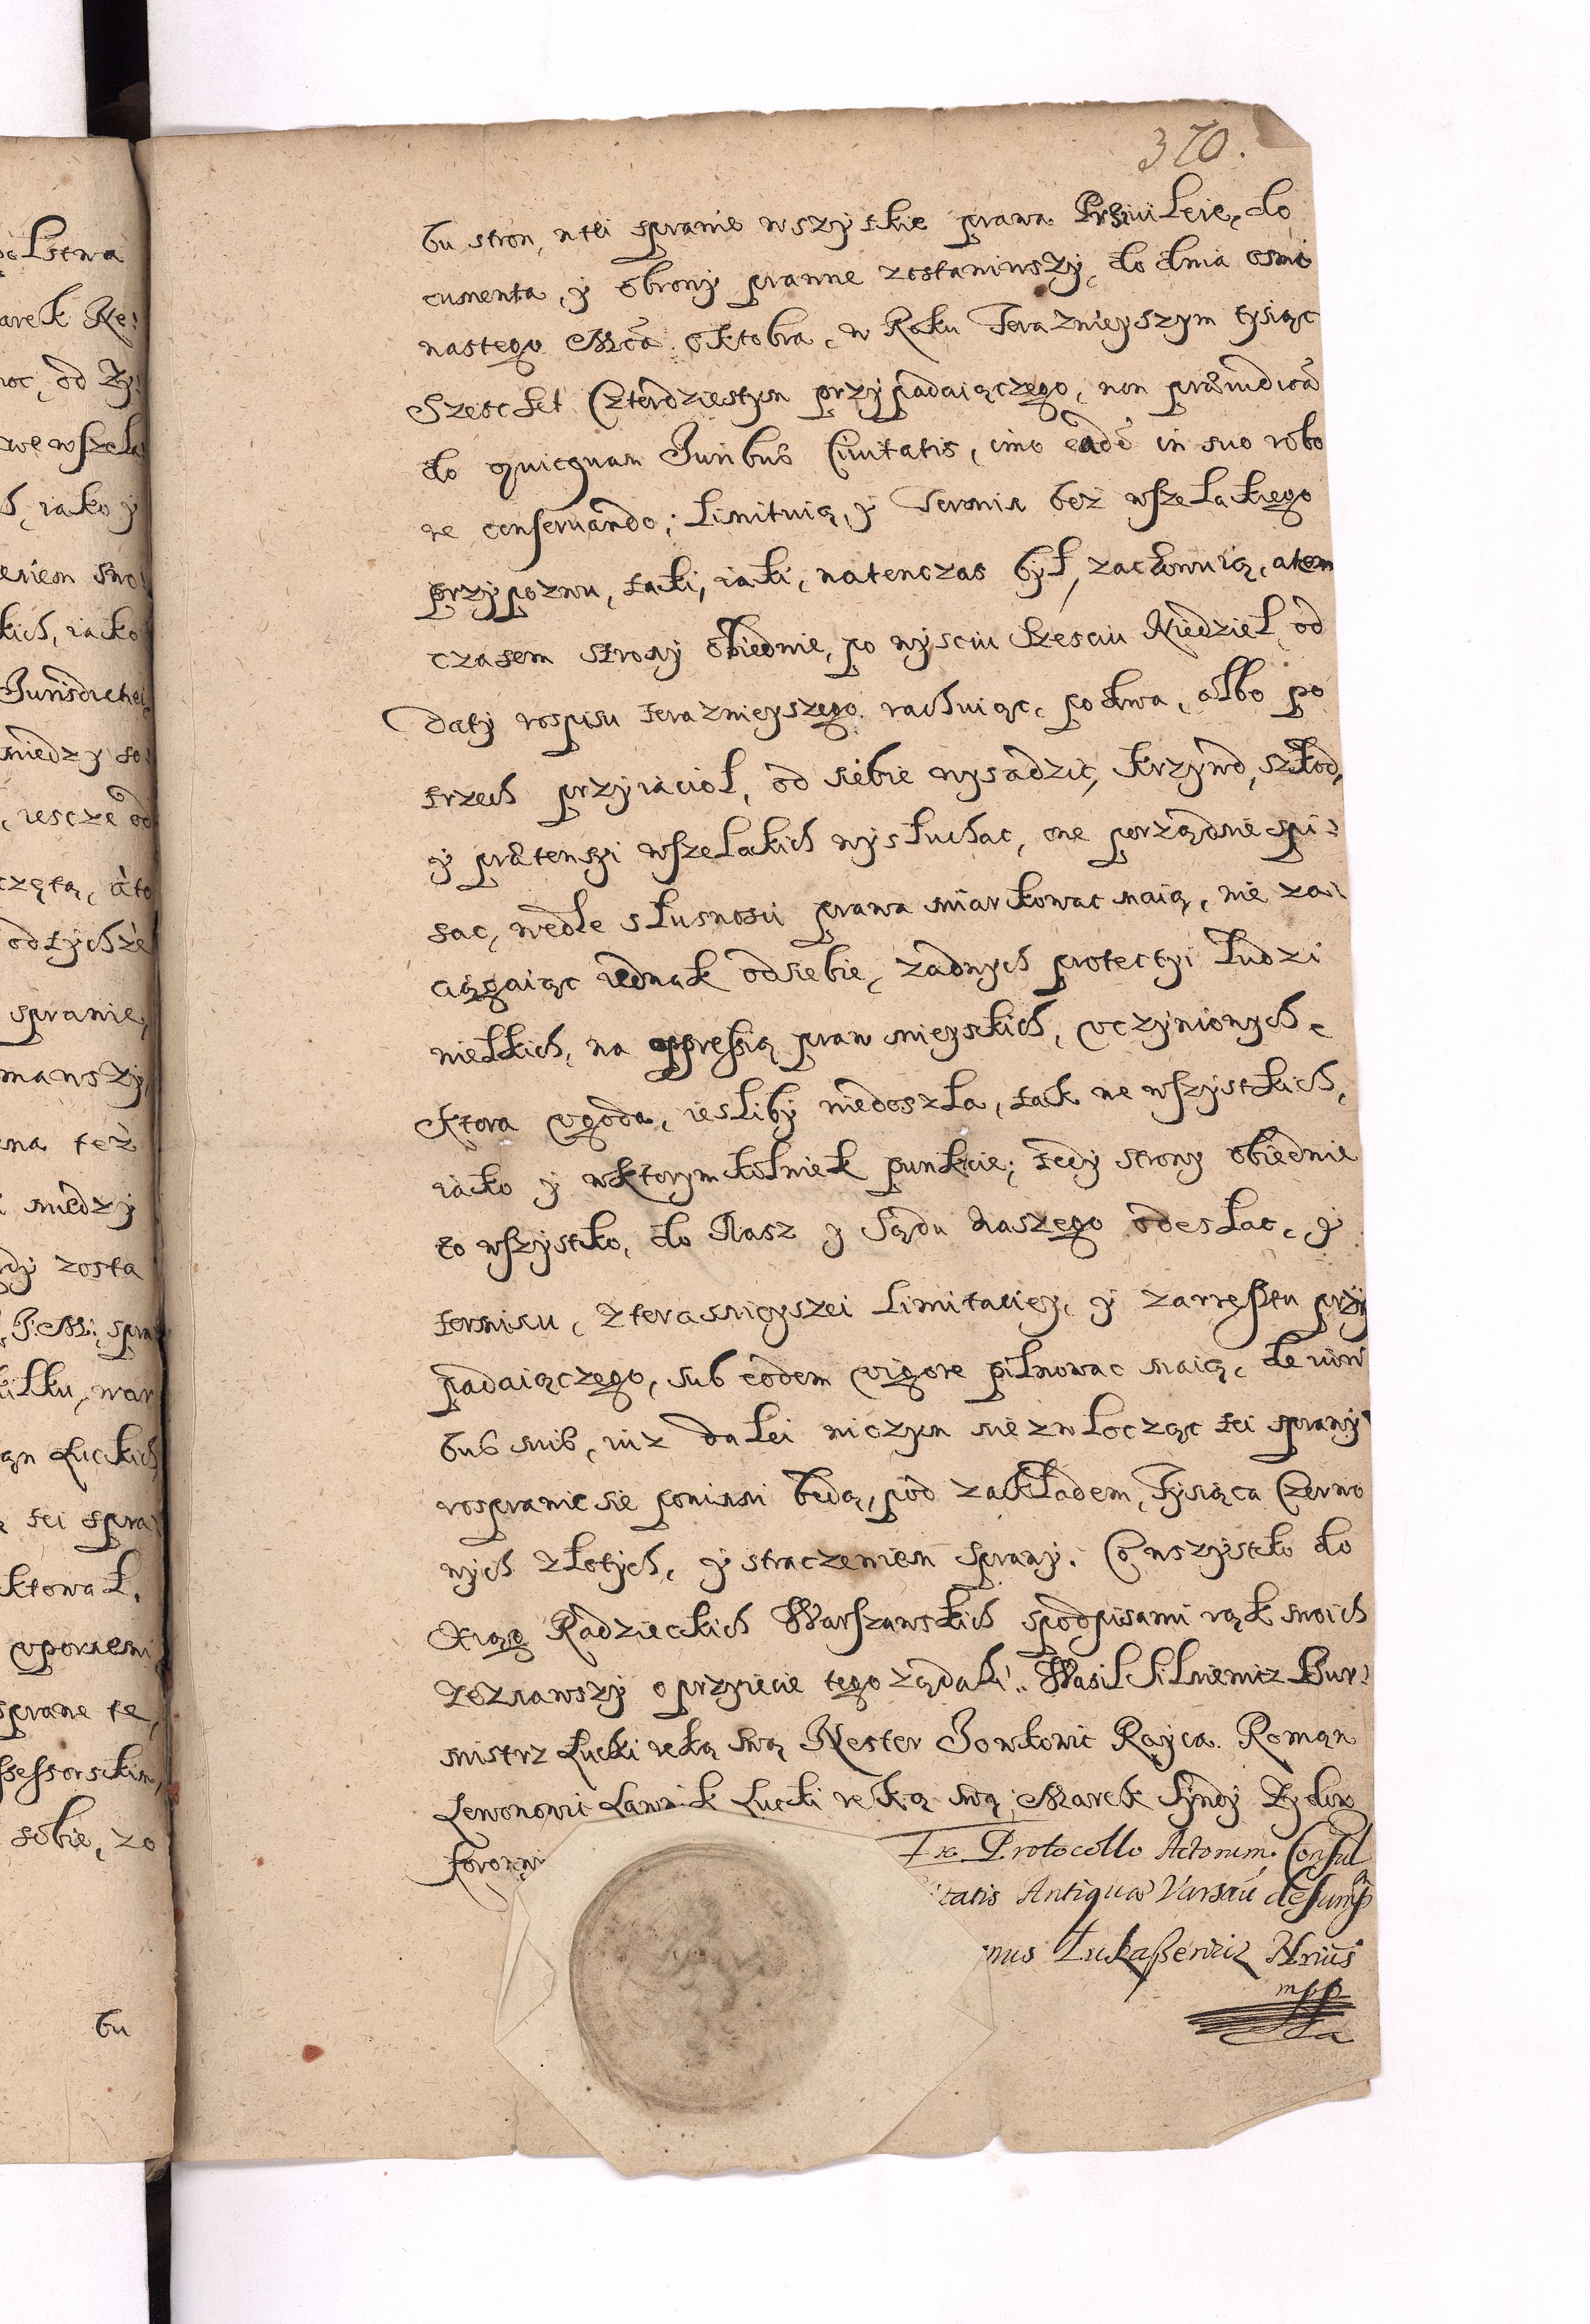 370.
bu stron, w tei sprawie wszystkie prawa Prziuileie, do
cumenta, y obrony prawne zostawiwszy, do dnia osmi
nastego Mca Oktobra, w Roku Terazniejszym tysiąc
Szescset Czterdziestym przypadaiączego, non praeiudica
do quicquam Juribus Ciuitatis, imo eadē in suo robo
re conseruando; Limituią, y Termin bez wszelakiego
przypozwu, taki, iaki, natenczas był, zachowuią, a tem
czasem strony obiedwie, po wysciu Szesciu Niedziel, od
daty rospisu terazniejszego rachuiąc, po dwu, albo po
trzech przyiaciol, od siebie wysadzic, Krzywd, szkod,
y praetensyi wszelakich wysłuchac, one porządnie spi:
sac, wedle słusnosci prawa miarkowac maią, nie za:
ciągaiąc iednak odsiebie, zadnych protectyi Ludzi
wielkich, na oppressią praw mieyskich, vczynionych,
Ktora vgoda, iesliby niedoszła, tak we wszystkich,
iako y wktorymkolwiek punkcie; tedy strony obiedwie
to wszystko, do Nasz y Sądu Naszego odesłac, y
terminu, z terasnieyszei Limitaciey, y zarresztu przy
padaiączego, sub eodem vigore pilnowac maią, de uiw
bus suis, iuz dalei niczym nie zwłocząc tei sprawy
rosprawicsie powinni będą, pod zakładem, Tysiąca Czerwo
nych złotych, y straczeniem sprawy. Co wszystko do
Xiąg Radzieckich Warszawskich spodpisami rąk swoich
Zeznawszy o przyiecie tego ządali. Wasil Silniewicz Bur:
mistrz Łucki ręką swą Nester Jowkowic Rayca. Roman
Lewonowic Ławnik Łucki reką swą Marek Syndy Zydow
Ex Protocollo Actorum Consul
itatis Antiquae Varsau desump
nus Łukaßewicz Nrius
mpp